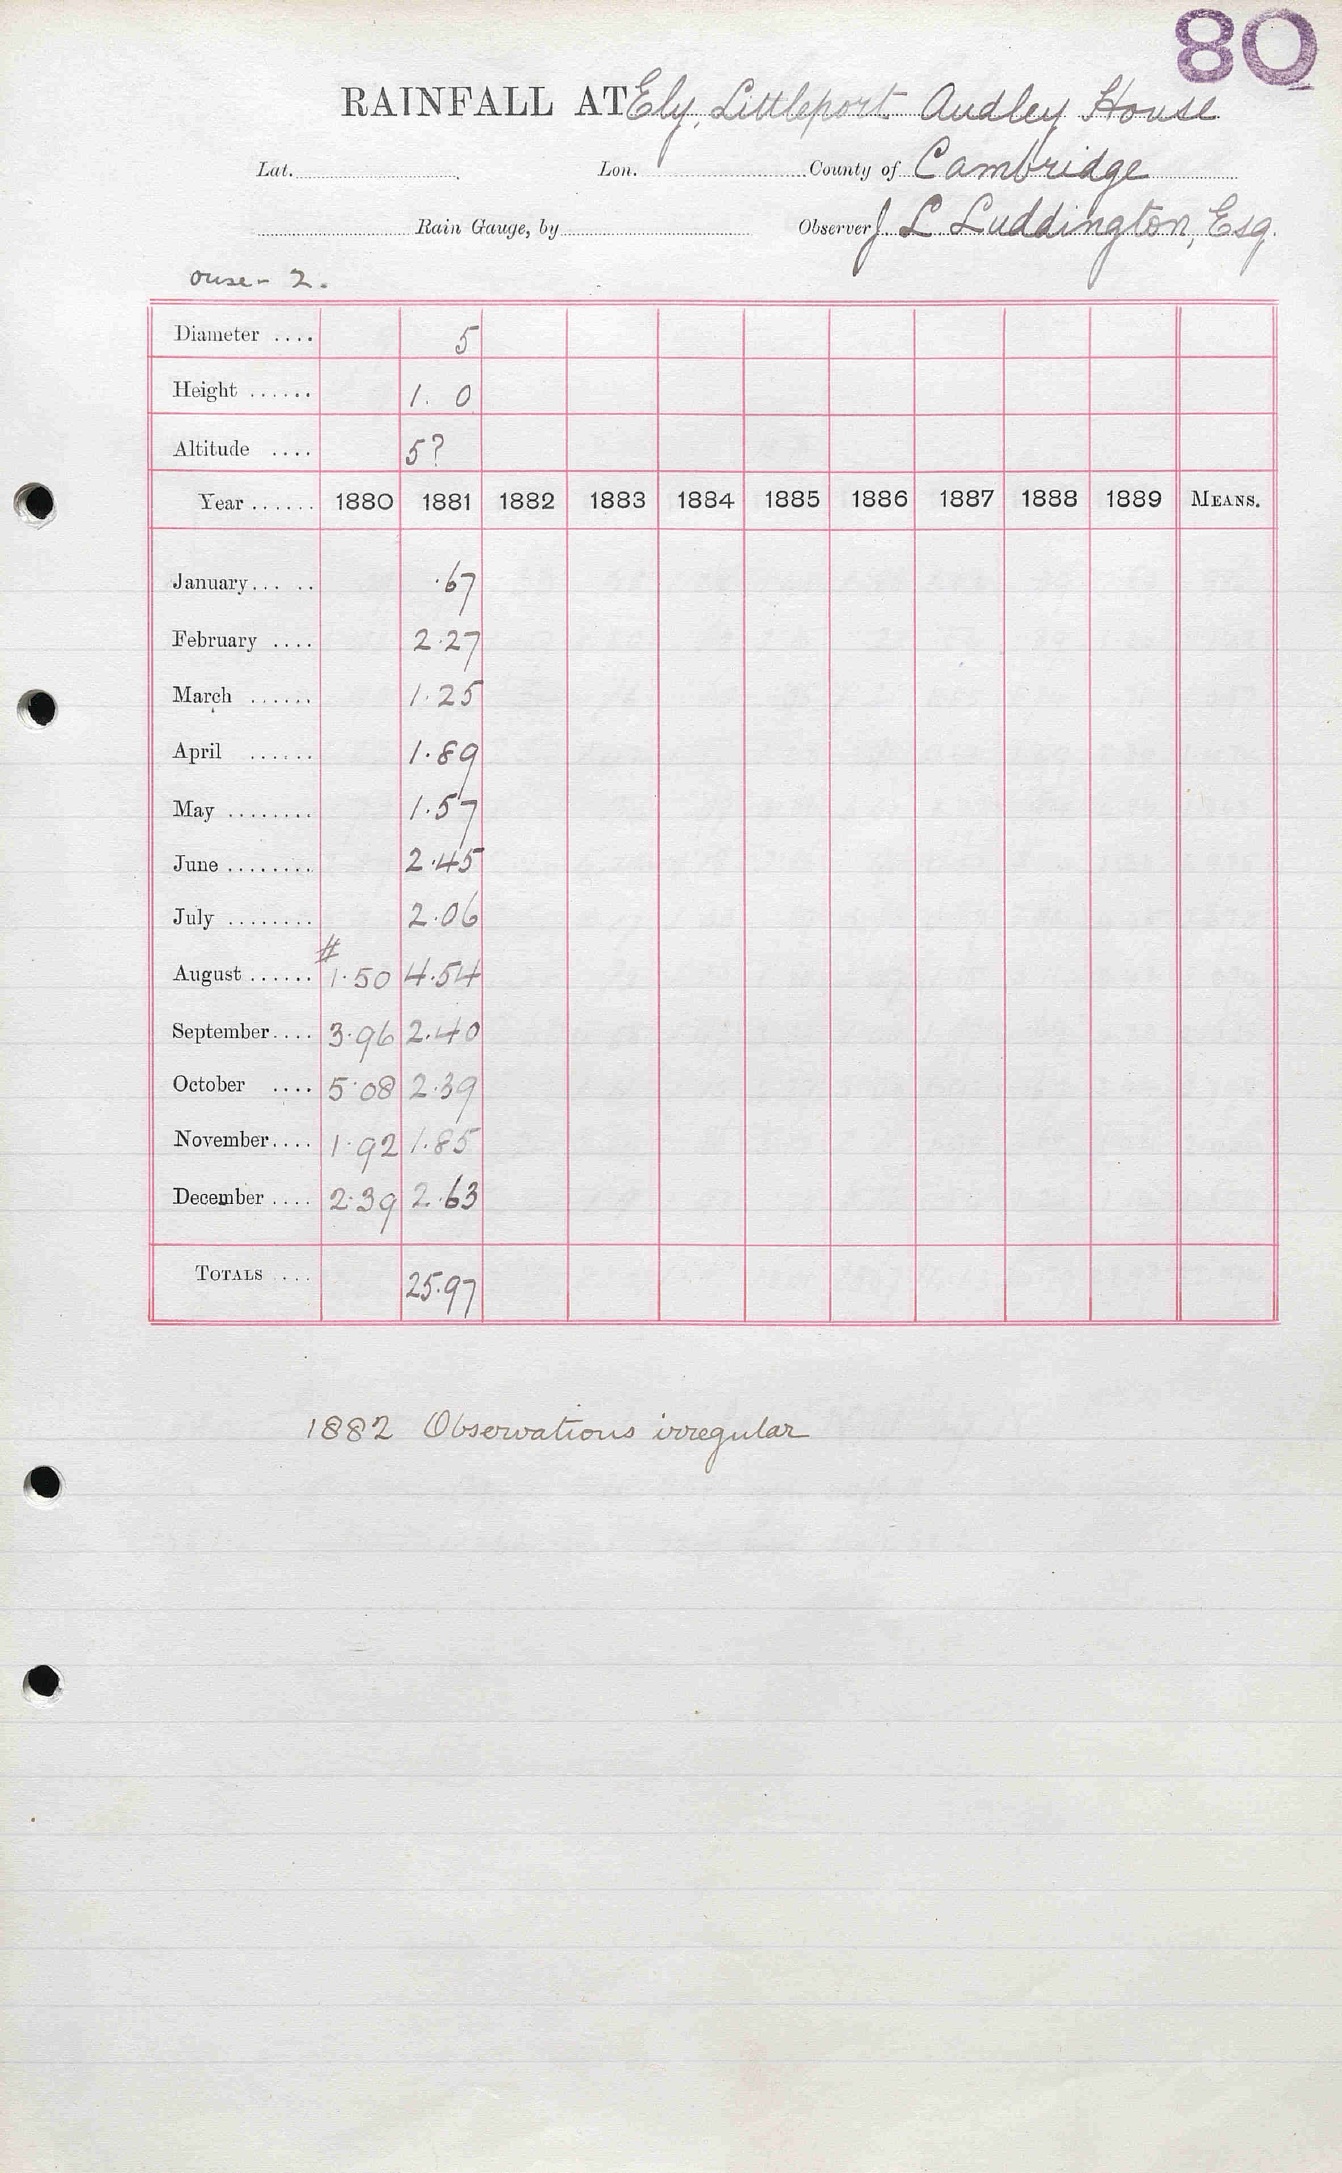 80
RAINFALL AT Ely, Littleport Audley House
Lat. Lon. County of Cambridge
Rain Gauge, by Observer J L Luddington, Esq.
ouse - 2.
Diameter .... 5
Height ...... 1. 0
Altitude .... 5?
Year ...... 1880 1881 1882 1883 1884 1885 1886 1887 1888 1889 MEANS.
January... .. .67
February .... 2.27
March ...... 1.25
April ...... 1.89
May ........ 1.57
June ........ 2.45
July ........ 2.06
#
August ...... 1.50 4.54
September.... 3.96 2.40
October .... 5.08 2.39
November.... 1.92 1.85
December .... 2.39 2.63
TOTALS .... 25.97
1882 Observations irregular